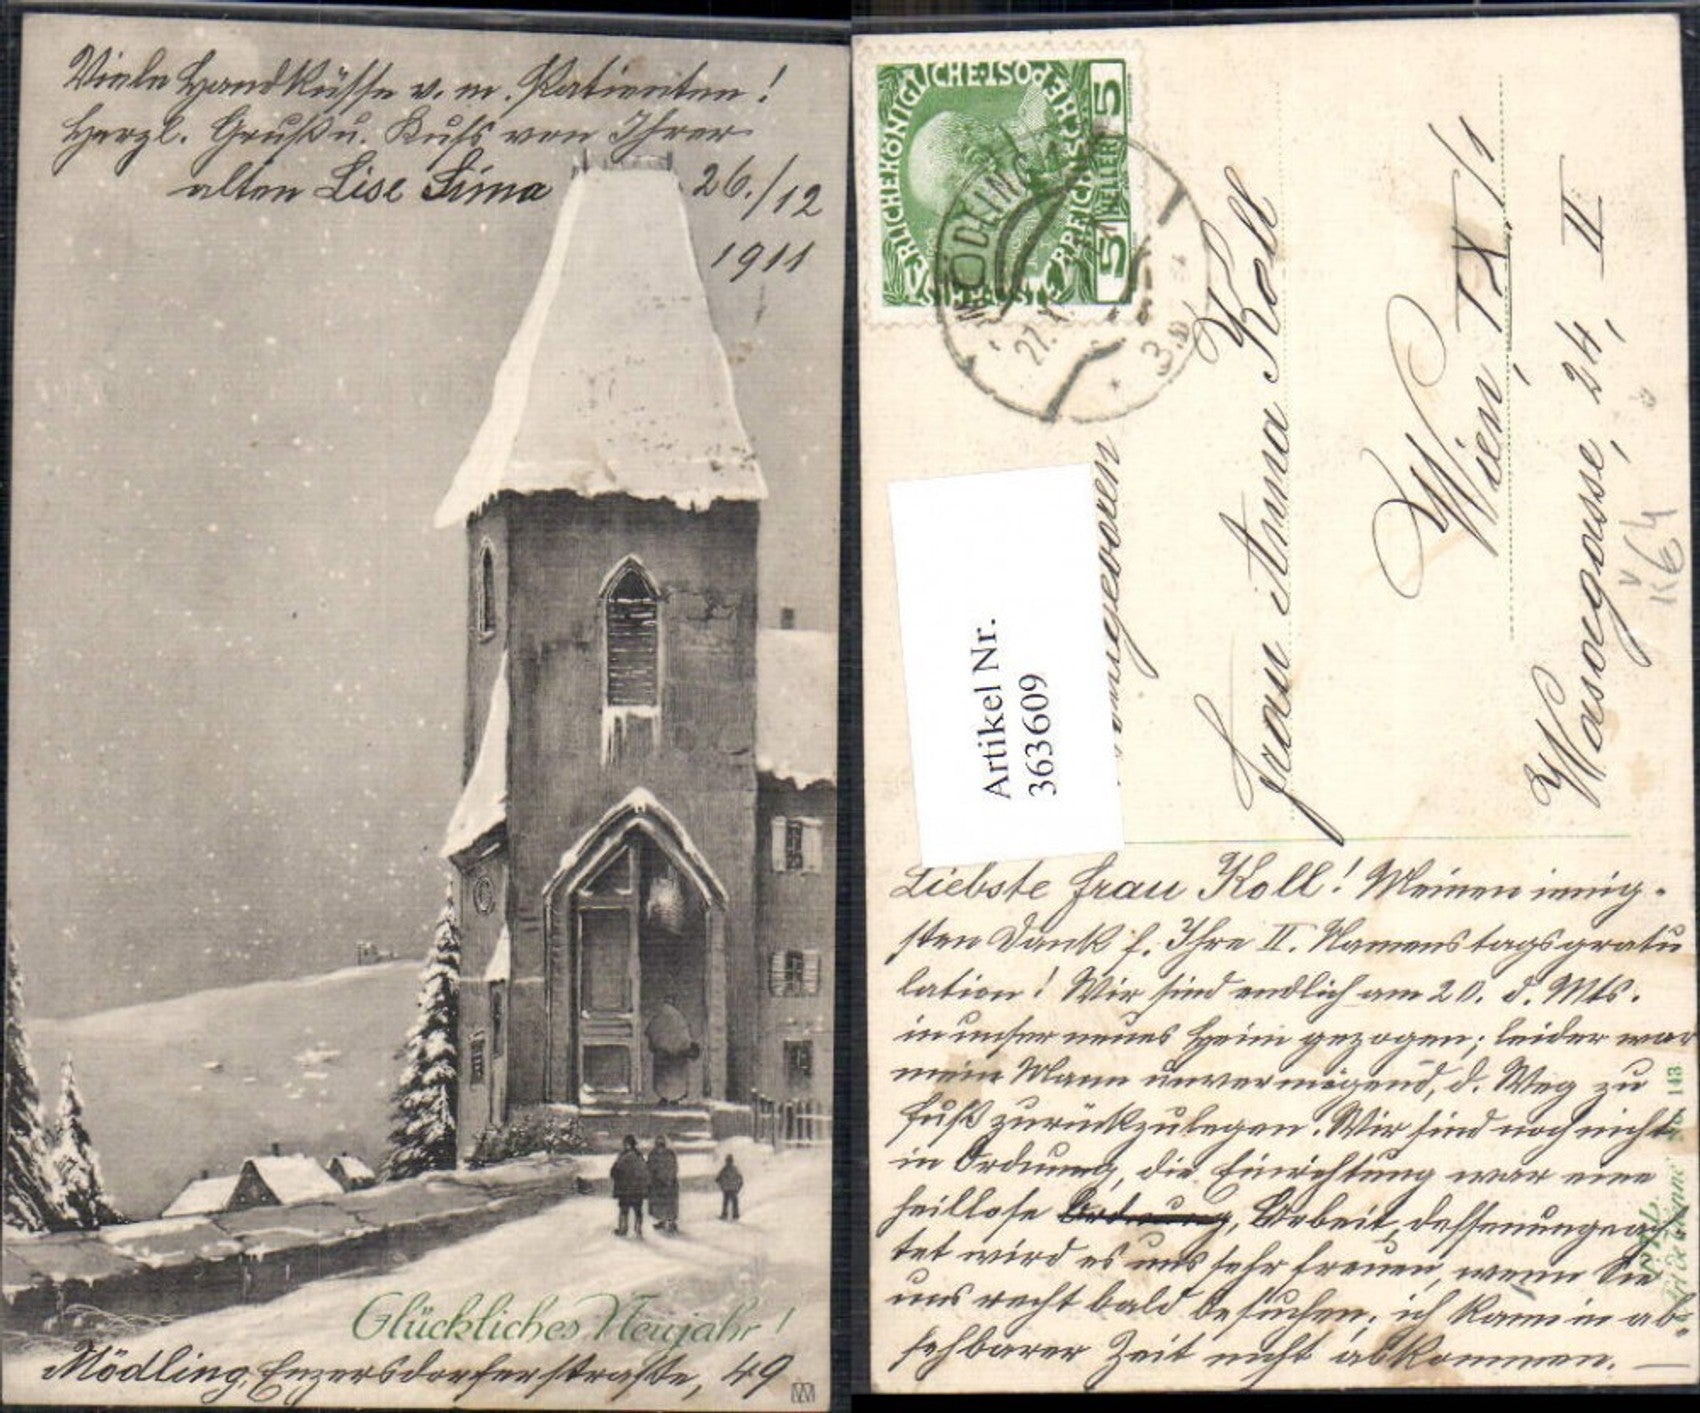 Viele Handküsse v. m. Patienten!
Herzl. Gruß u. Kuss von Ihrer
alten Lise Sima
26./12
1911
Glückliches Neujahr!
Mödling, Enzersdorferstraße, 49
5 HELLER 5
MÖDLING
27. X
3
Frau Anna Koll
Wien, IX/1
Wasagasse, 24, II
Artikel Nr.
363609
Liebste Frau Koll! Meinen innig-
sten Dank f. Ihre II. Namenstagsgratu
lation! Wir sind endlich am 20. d. Mts.
in unser neues Heim gezogen; leider war
mein Mann unvermögend, d. Weg zu
Fuß zurückzulegen. Wir sind noch nicht
in Ordnung, die Einrichtung war eine
heillose Ordnung, Arbeit, dessenungeach
tet wird es uns sehr freuen, wenn Sie
uns recht bald besuchen; ich kann in ab-
sehbarer Zeit nicht abkommen. —
143